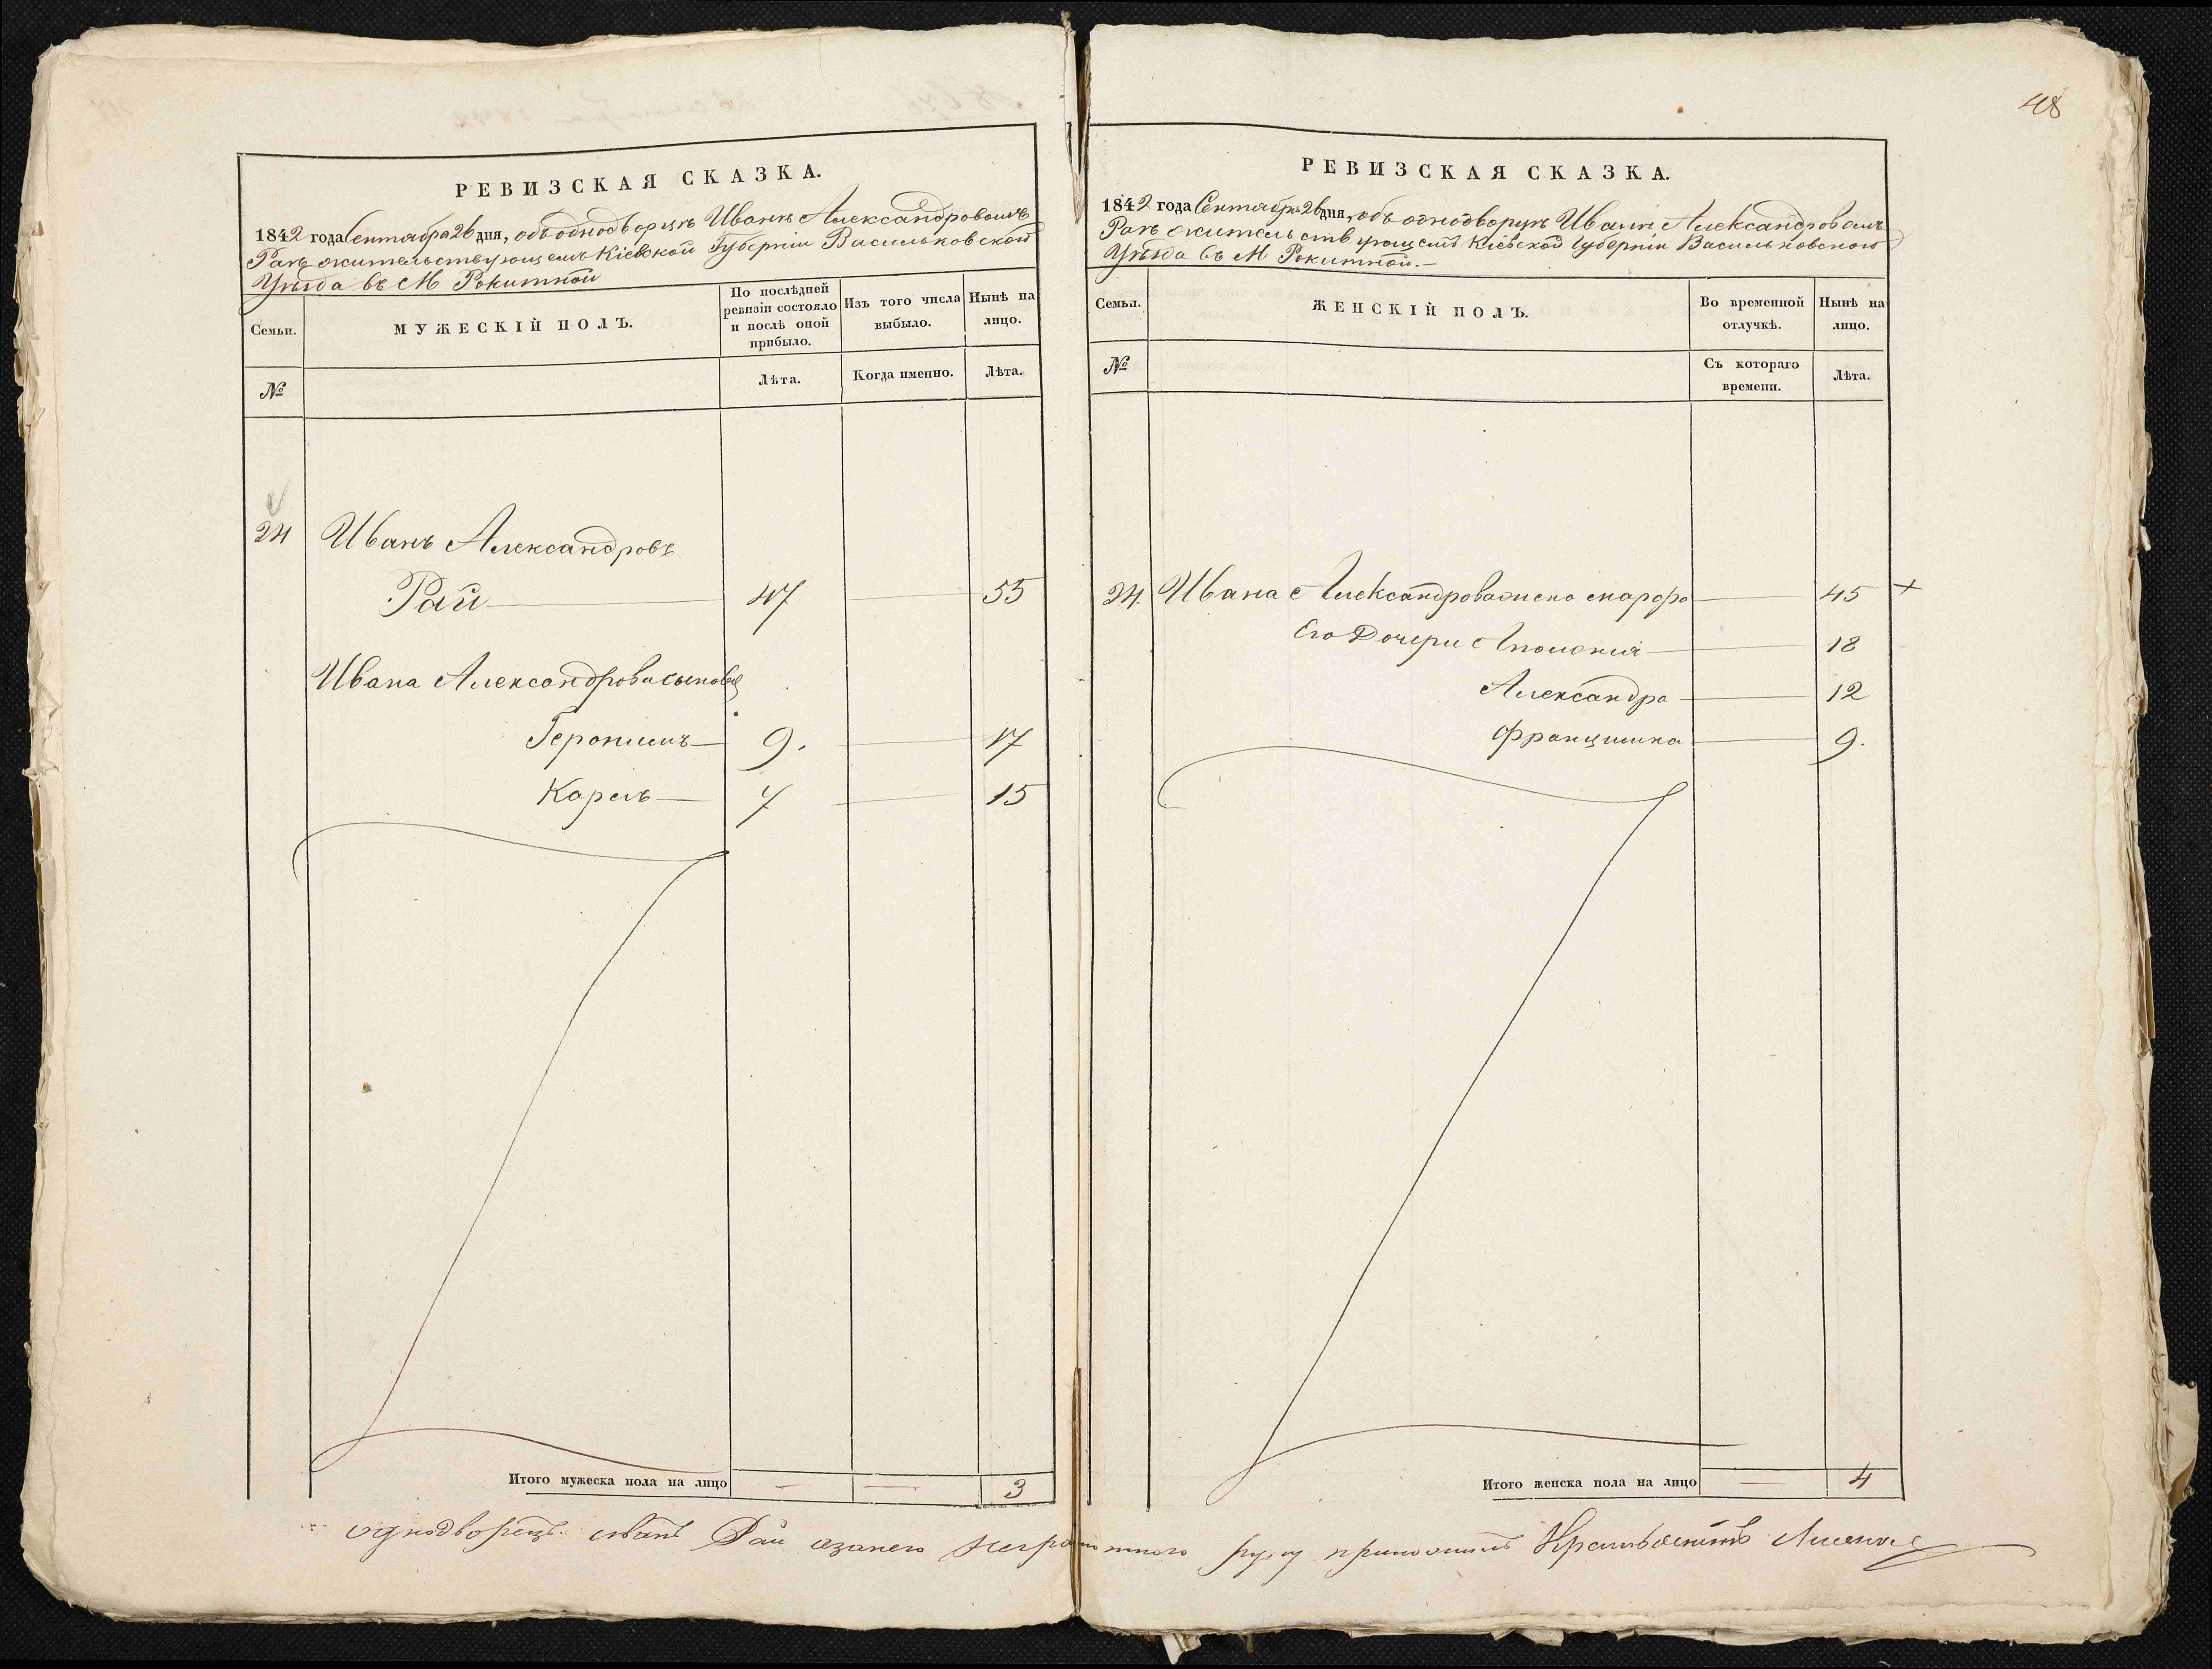 РЕВИЗСКАЯ СКАЗКА.
1842 года Сентября 26 дня, объ однодворцѣ Иванѣ Александровомъ
Раѣ жительствующемъ Кіевской Губерніи Васильковской
Уѣзда въ М Рокитной
Семьи.
МУЖЕСКІЙ ПОЛЪ.
По послѣдней ревизіи состояло и послѣ оной прибыло.
Изъ того числа выбыло.
Нынѣ на лицо.
№
Лѣта.
Когда именно.
Лѣта.
24 Иванъ Александровъ
Рай 47 55
Ивана Александрова сыновья
Геронимъ 9. 17
Кароль 7 15
Итого мужеска пола на лицо — — 3
48
РЕВИЗСКАЯ СКАЗКА.
1842 года Сентября 26 дня, объ однодворцѣ Иванѣ Александровомъ
Раѣ жительствующемъ Кіевской Губерніи Васильковского
Уѣзда въ М Рокитной.—
Семьи.
ЖЕНСКІЙ ПОЛЪ.
Во временной отлучкѣ.
Нынѣ на лицо.
№
Съ котораго времени.
Лѣта.
24. Ивана Александрова жена 45 +
Его Дочери Аполонія 18
Александра 12
Францишка 9.
Итого женска пола на лицо — 4
однодворецъ Иванъ Рай а за него неграмотного руку приложилъ